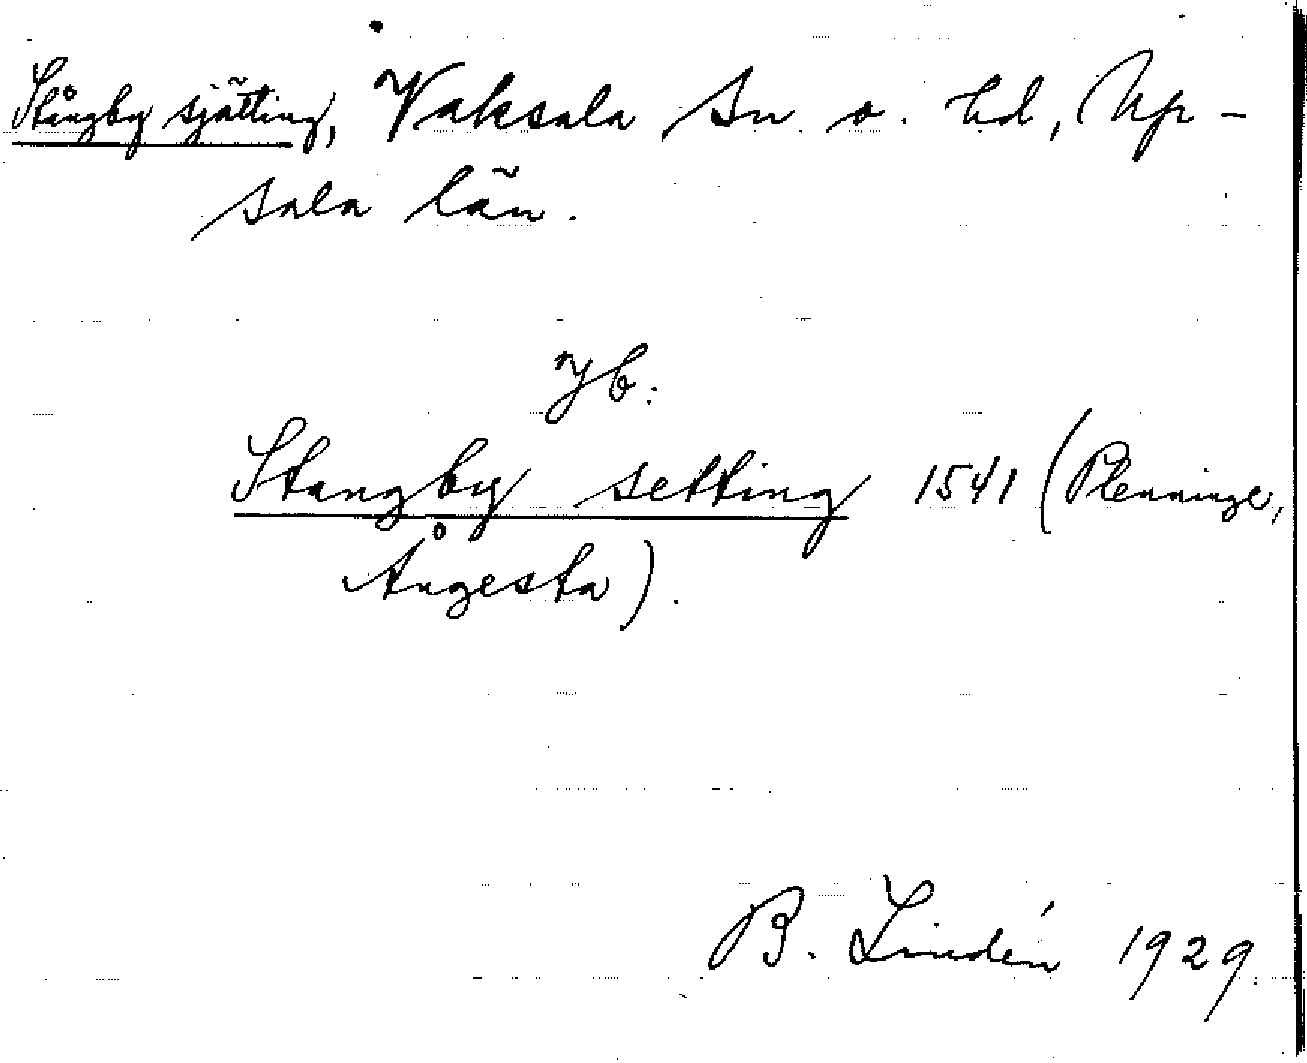 Stångby sjätting, Vaksala sn o. hd, Up-
sala län.
Jb:
Stangby setting 1541 (Plenninge,
Ångesta).
B. Lindén 1929.